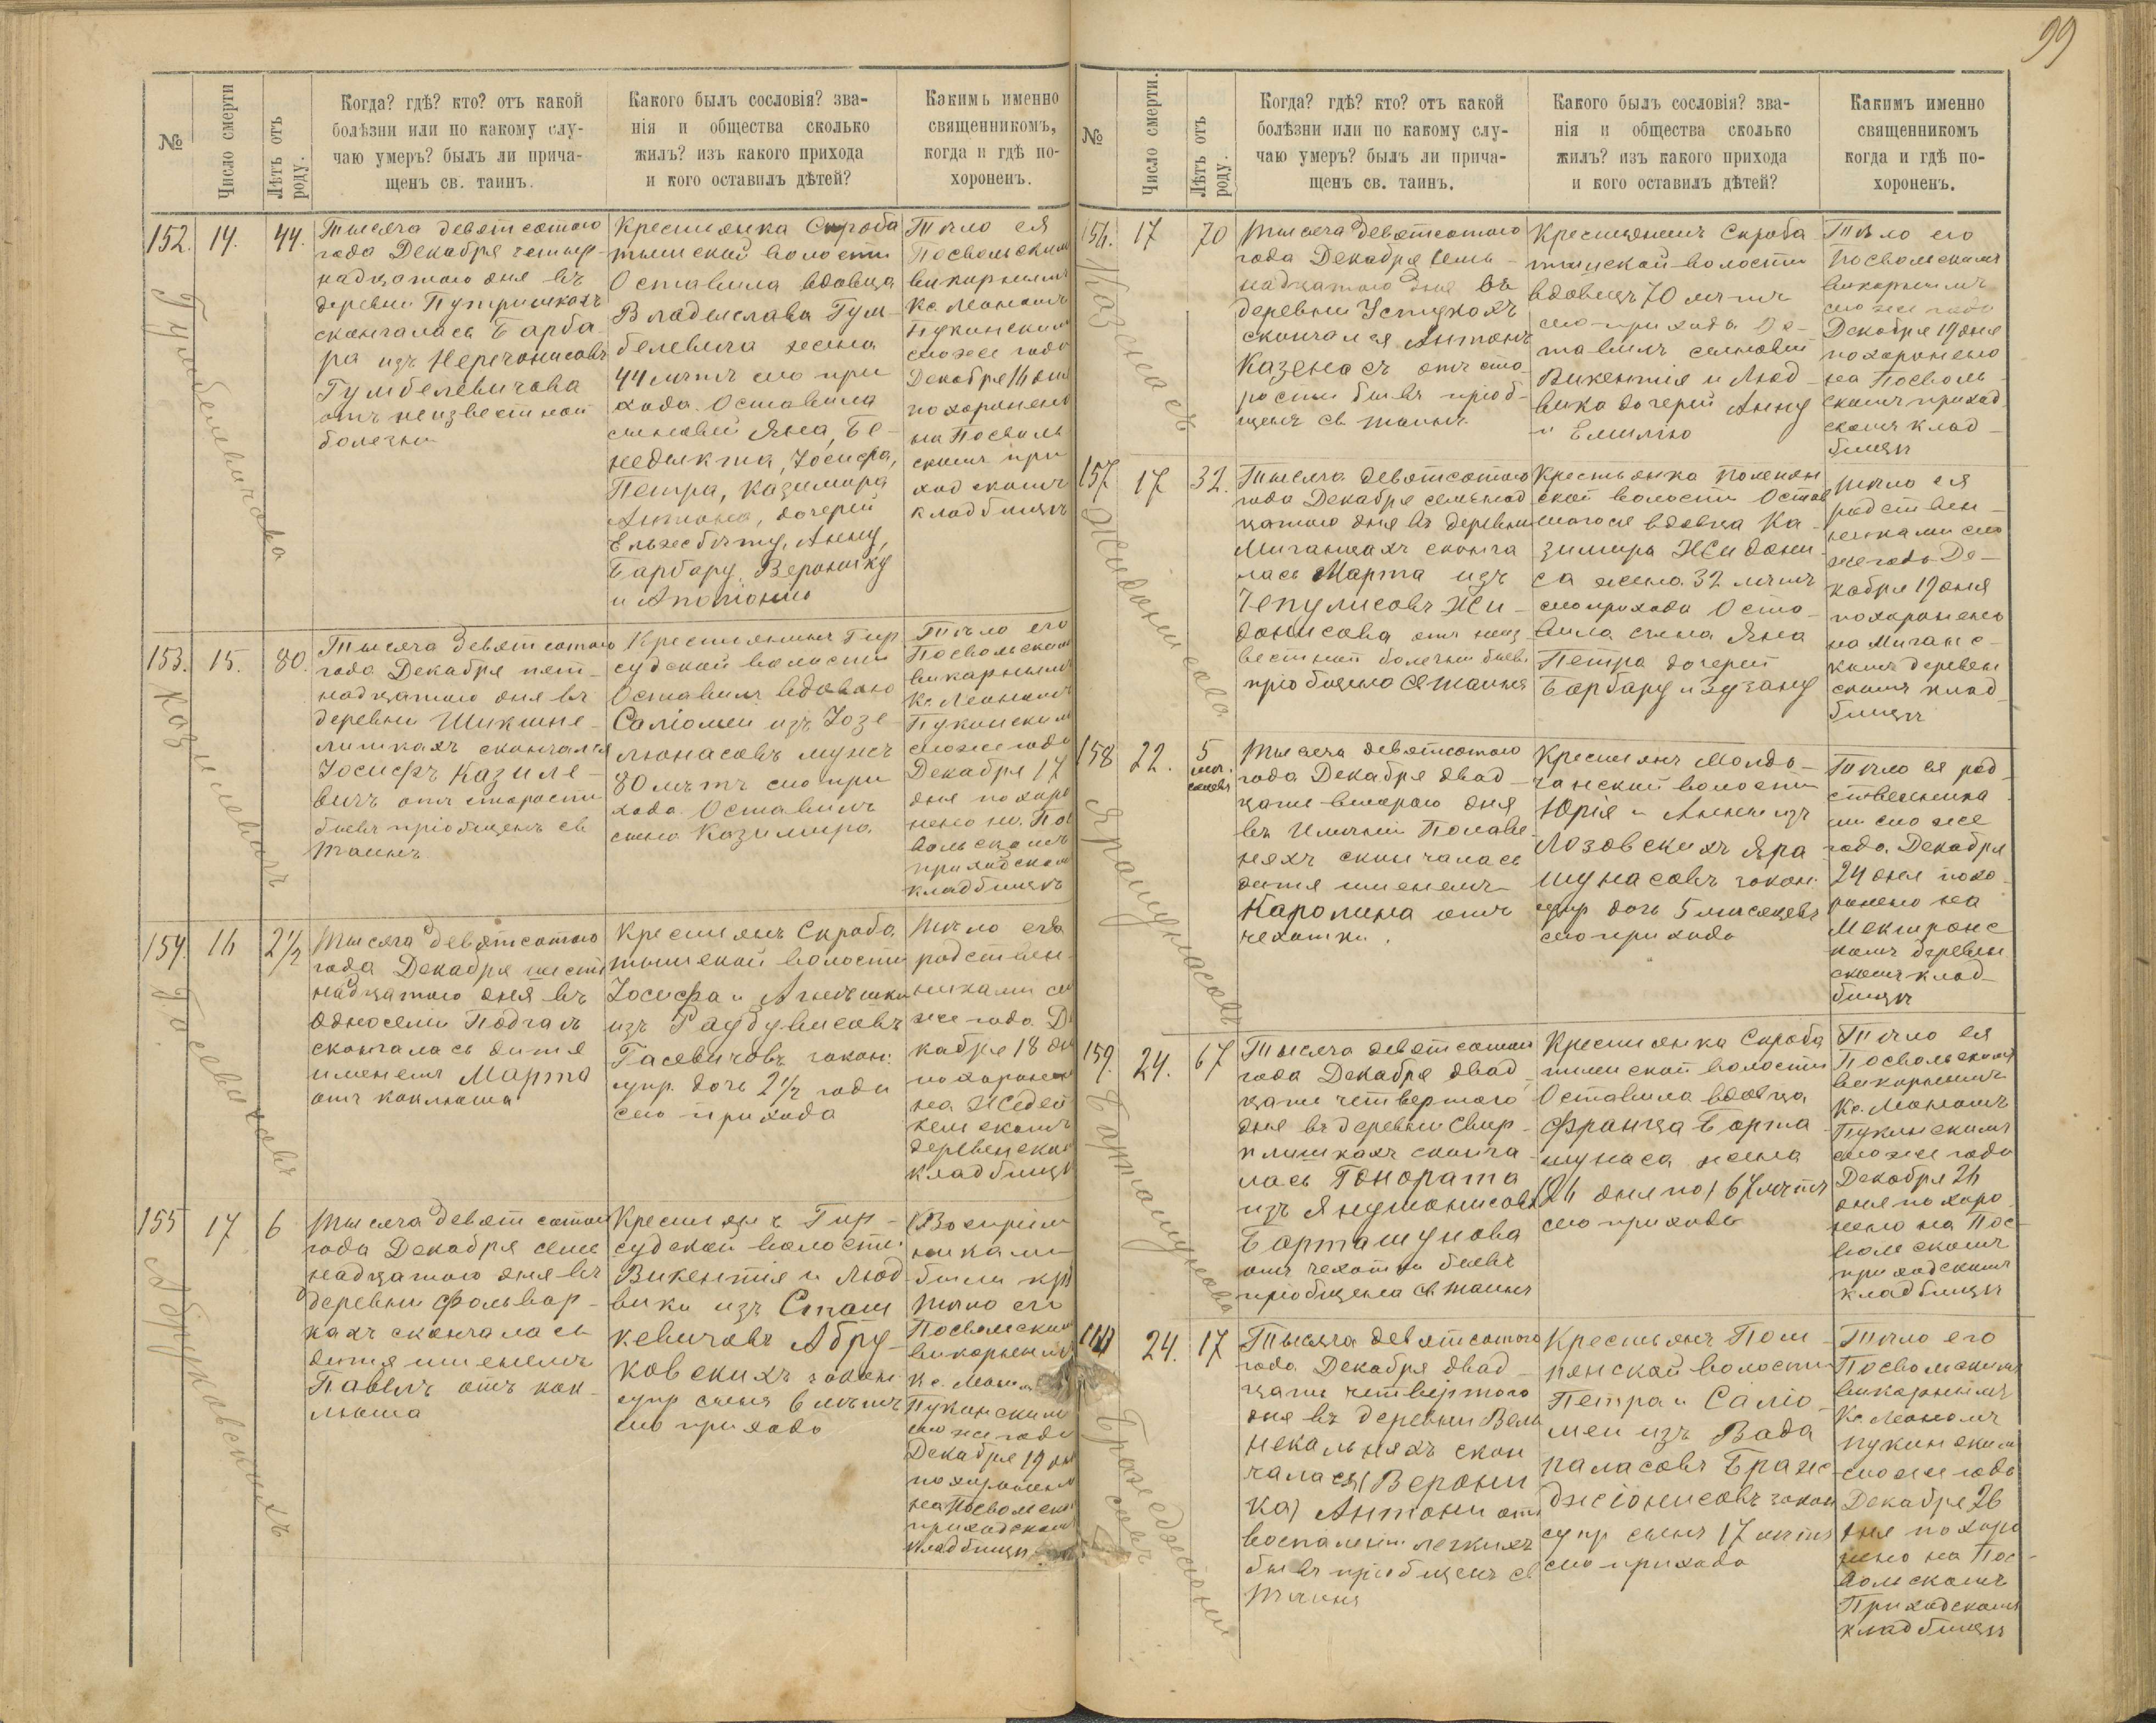 99
№
Число смерти
Лѣтъ отъ роду.
Когда? гдѣ? кто? отъ какой
болѣзни или по какому слу-
чаю умеръ? былъ ли прича-
щенъ св. таинъ.
Какого былъ сословія? зва-
нія и общества сколько
жилъ? изъ какого прихода
и кого оставилъ дѣтей?
Какимъ именно
священникомъ,
когда и гдѣ по-
хороненъ.
152.
14.
44.
Гумбелевичова
Тысяча девятсотого
года Декабря четыр-
надцатого дня въ
деревни Путришкахъ
скончалась Барба
ра изъ Неречонисовъ
Гумбелевичова
отъ неизвестной
болезни
Крестянка Скроба
тышской волости
Оставила вдовца
Владыслава Гум-
белевича жена
44 лѣтъ сто при
хода. Оставила
сыновей Яна, Бе-
недыкта, Іосифа,
Петра, Казимира
Антона, дочерей
Ельжбѣту, Анну,
Барбару, Веронику
и Аполонію
Тѣло ея
Посвольским
викарнымъ
Кс. Леономъ
Пукинским
сего же года
Декабря 16 дня
похоронено
на Посволь
скомъ при
ходскомъ
кладбищѣ
153.
15.
80.
Казилевичъ
Тысяча девятсотого
года Декабря пят-
надцатого дня въ
деревни Шикшне-
лишкахъ скончался
Іосифъ Казиле-
вичъ отъ старости
бывъ пріобщенъ св
таинъ
Крестянинъ Гир
судской волости
Оставилъ вдовою
Саліомеи изъ Іозе-
люнасовъ мужъ
80 лѣтъ сто при
хода. Оставилъ
сына Казимира.
Тѣло его
Посвольским
викарнымъ
Кс. Леономъ
Пукинским
сего же года
Декабря 17
дня похоро
нено на По
вольскомъ
приходском
кладбищѣ
154.
16
2½
Гасевичовъ
Тысяча девятсотого
года Декабря шест
надцатого дня въ
односели Подчасъ
скончалась дитя
именемъ Марта
отъ коклюша
Крестянъ Скроба
тышской волости
Іосифа и Агнѣшки
изъ Раудувисовъ
Гасевичовъ закон:
супр. дочь 2½ года
сто прихода
Тѣло ея
родствен-
никами се
же года Де
кабря 18 дня
похоронено
на Жедей
кельскомъ
деревенском
кладбищѣ
155
17
6
Абруковскихъ
Тысяча девятсотого
года Декабря семь
надцатого дня въ
деревни Фольвар-
кахъ скончалась
дитя именемъ
Павелъ отъ кок-
люша
Крестянъ Гир-
судской волости
Викентія и Люд-
вики изъ Сташ
кевичовъ Абру-
ковскихъ закон
супр сынъ 6 лѣтъ
сто прихода
были
Тѣло его
Посвольским
викарнымъ
Кс. Леон
Пукинским
сего же года
Декабря 19 дня
похоронено
на Посвольском
приходском
кладбищѣ
№
Число смерти.
Лѣтъ отъ роду.
Когда? гдѣ? кто? отъ какой
болѣзни или по какому слу-
чаю умеръ? былъ ли прича-
щенъ св. таинъ.
Какого былъ сословія? зва-
нія и общества сколько
жилъ? изъ какого прихода
и кого оставилъ дѣтей?
Какимъ именно
священникомъ
когда и гдѣ по-
хороненъ.
156.
17
70
Казенасъ
Тысяча девятсотого
года Декабря семь-
надцатого дня въ
деревни Устукахъ
скончался Антонъ
Казенасъ отъ ста-
рости бывъ пріоб-
щенъ св таинъ.
Крестянинъ Скроба
тышской волости
вдовецъ 70 лѣтъ
сто прихода Ос-
тавилъ сыновей
Викентія и Люд-
вика дочерей Анну
и Емилію
Тѣло его
Посвольскимъ
викарнымъ
сего же года
Декабря 19 дня
похоронено
на Посволь-
скомъ приход
скомъ клад-
бищѣ
157
17
32.
Жидонисова
Тысяча девятсотого
года Декабря семьнад
цатого дня въ деревни
Миганцахъ сконча
лась Марта изъ
Чепулисовъ Жи-
донисова отъ неиз
вестной болезни бывъ
пріобщена св таинъ
Крестьянка
ской волости Остав
вдовца Ка-
зимира Жидони-
са жена 32 лѣтъ
сто прихода Оста-
вила сына Яна
Петра дочерей
Барбару и Зузану
Тѣло ея
родствен-
никами сего
же года Де-
кабря 19 дня
похоронено
на Миганс-
комъ деревен
скомъ клад
бищѣ
158
22.
5
Ярашунасовъ
Тысяча девятсотого
года Декабря двад-
цать второго дня
въ Имѣнии Полаве-
няхъ скончалась
дитя именемъ
Каролина отъ
чехотки.
Крестянъ Молдо-
чанской волости
Юрія и Анны изъ
Лозовскихъ Яра
шунасовъ закон.
супр дочь 5 мѣсяцевъ
сто прихода
Тѣло ея род
ственника
ми сего же
года. Декабря
24 дня похо
ронено на
комъ деревен
скомъ клад-
бищѣ
159.
24.
67
Барташунова
Тысяча девятсотого
года Декабря двад
цать четвертого
дня въ деревни Свир-
плишкахъ сконча-
лась Гонората
изъ Янушонисовъ
Барташунова
отъ чехотки бывъ
пріобщена св таинъ
Крестянка Скроба
тышской волости
Оставила вдовца
Франца Барта-
шунаса жена
(26 дня по) 67 лѣтъ
сто прихода
Тѣло ея
Посвольскимъ
викарнымъ
Кс. Леономъ
Пукинскимъ
сего же года
Декабря 26
дня похоро
нено на Пос-
вольскомъ
приходскомъ
кладбищѣ
24.
17
Тысяча девятсотого
года Декабря двад-
цать четвертого
дня въ деревни Вели
некальняхъ скон
чалась (Верони
ка) Антони отъ
воспаленіи легкихъ
бывъ пріобщенъ св
Таинъ
Крестьянъ Пом-
пянской волости
Петра и Саліо-
меи изъ Вада
паласовъ Браж-
джіонисовъ закон
супр сынъ 17 лѣтъ
сто прихода
Тѣло его
Посвольскимъ
викарнымъ
Кс Леономъ
Пукинским
сего же года
Декабря 26
дня похоро
нено на Пос-
вольскомъ
Приходскомъ
кладбищѣ